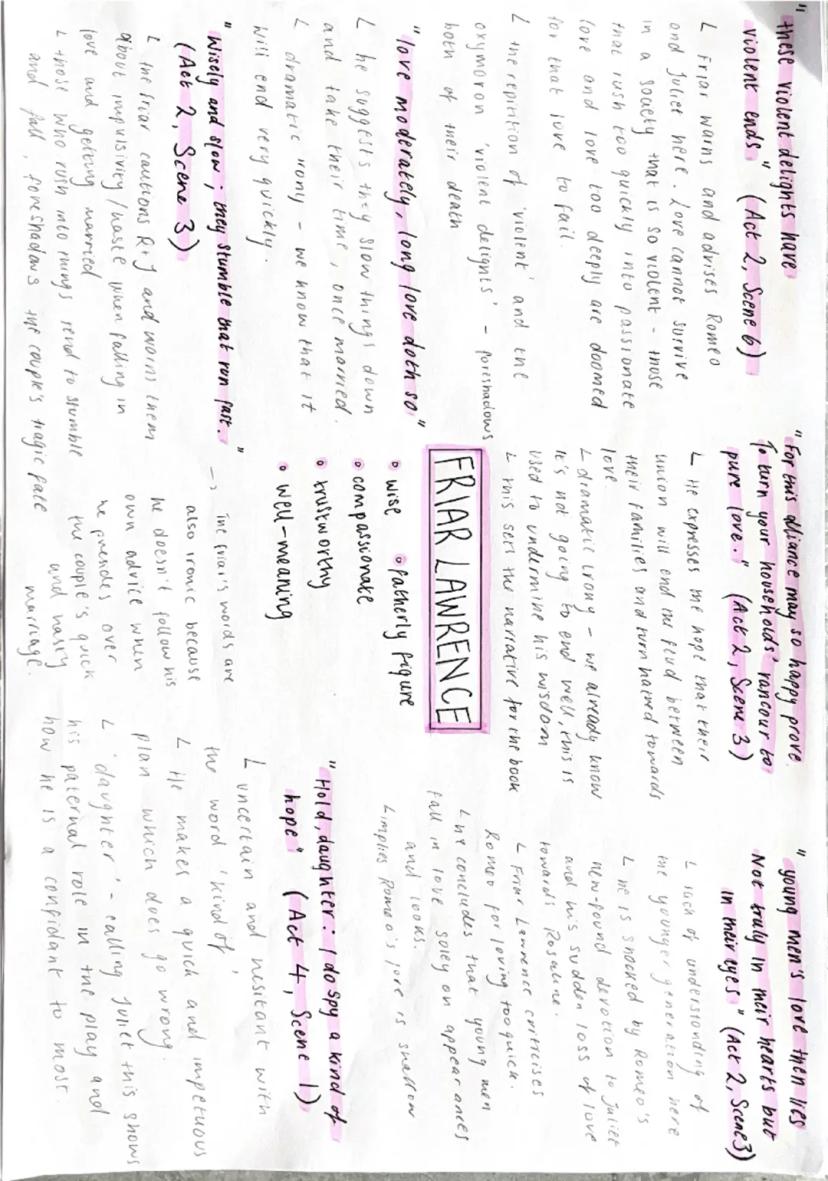 "these violent delights have
violent ends" (Act 2, Scene 6)
L Friar warns and advises Romeo
and Juliet here. Love cannot survive
in a society that is so violent - those
that rush too quickly into passionate
love and love too deeply are doomed
for that love to fail.
L the repitition of 'violent' and the
oxymoron 'violent delights' - foreshadows
both of their death
"love moderately, long love doth so"
L he suggests they slow things down
and take their time, once married.
L dramatic irony - we know that it
will end very quickly.
"Wisely and slow; they stumble that run fast."
(Act 2, Scene 3)
L the friar cautions R+J and warns them
about impulsivity/haste when falling in
love and getting married
L those who rush into things tend to stumble
and fall, foreshadows the couple's tragic fate
"For this alliance may so happy prove
To turn your households' rancour to
pure love." (Act 2, Scene 3)
L He expresses the hope that their
union will end the feud between
their families and turn hatred towards
love
L dramatic irony - we already know
it's not going to end well, this is
used to undermine his wisdom
L this sets the narrative for the book
FRIAR LAWRENCE
• wise • fatherly figure
• compassionate
• trustworthy
• well-meaning
-> The friar's words are
also ironic because
he doesn't follow his
own advice when
he presides over
the couple's quick
and hasty
marriage.
"young men's love then lies
Not truly in their hearts but
in their eyes" (Act 2, Scene 3)
L lack of understanding of
the younger generation here
L he is shocked by Romeo's
new-found devotion to Juliet
and his sudden loss of love
towards Rosaline.
L Friar Lawrence criticises
Romeo for loving too quick.
L he concludes that young men
fall in love soley on appearances
and looks.
L implies Romeo's love is shallow
"Hold, daughter: I do spy a kind of
hope" (Act 4, Scene 1)
L uncertain and hesitant with
the word 'kind of'
L He makes a quick and impetuous
plan which does go wrong.
L 'daughter' - calling Juliet this shows
his paternal role in the play and
how he is a confidant to most.